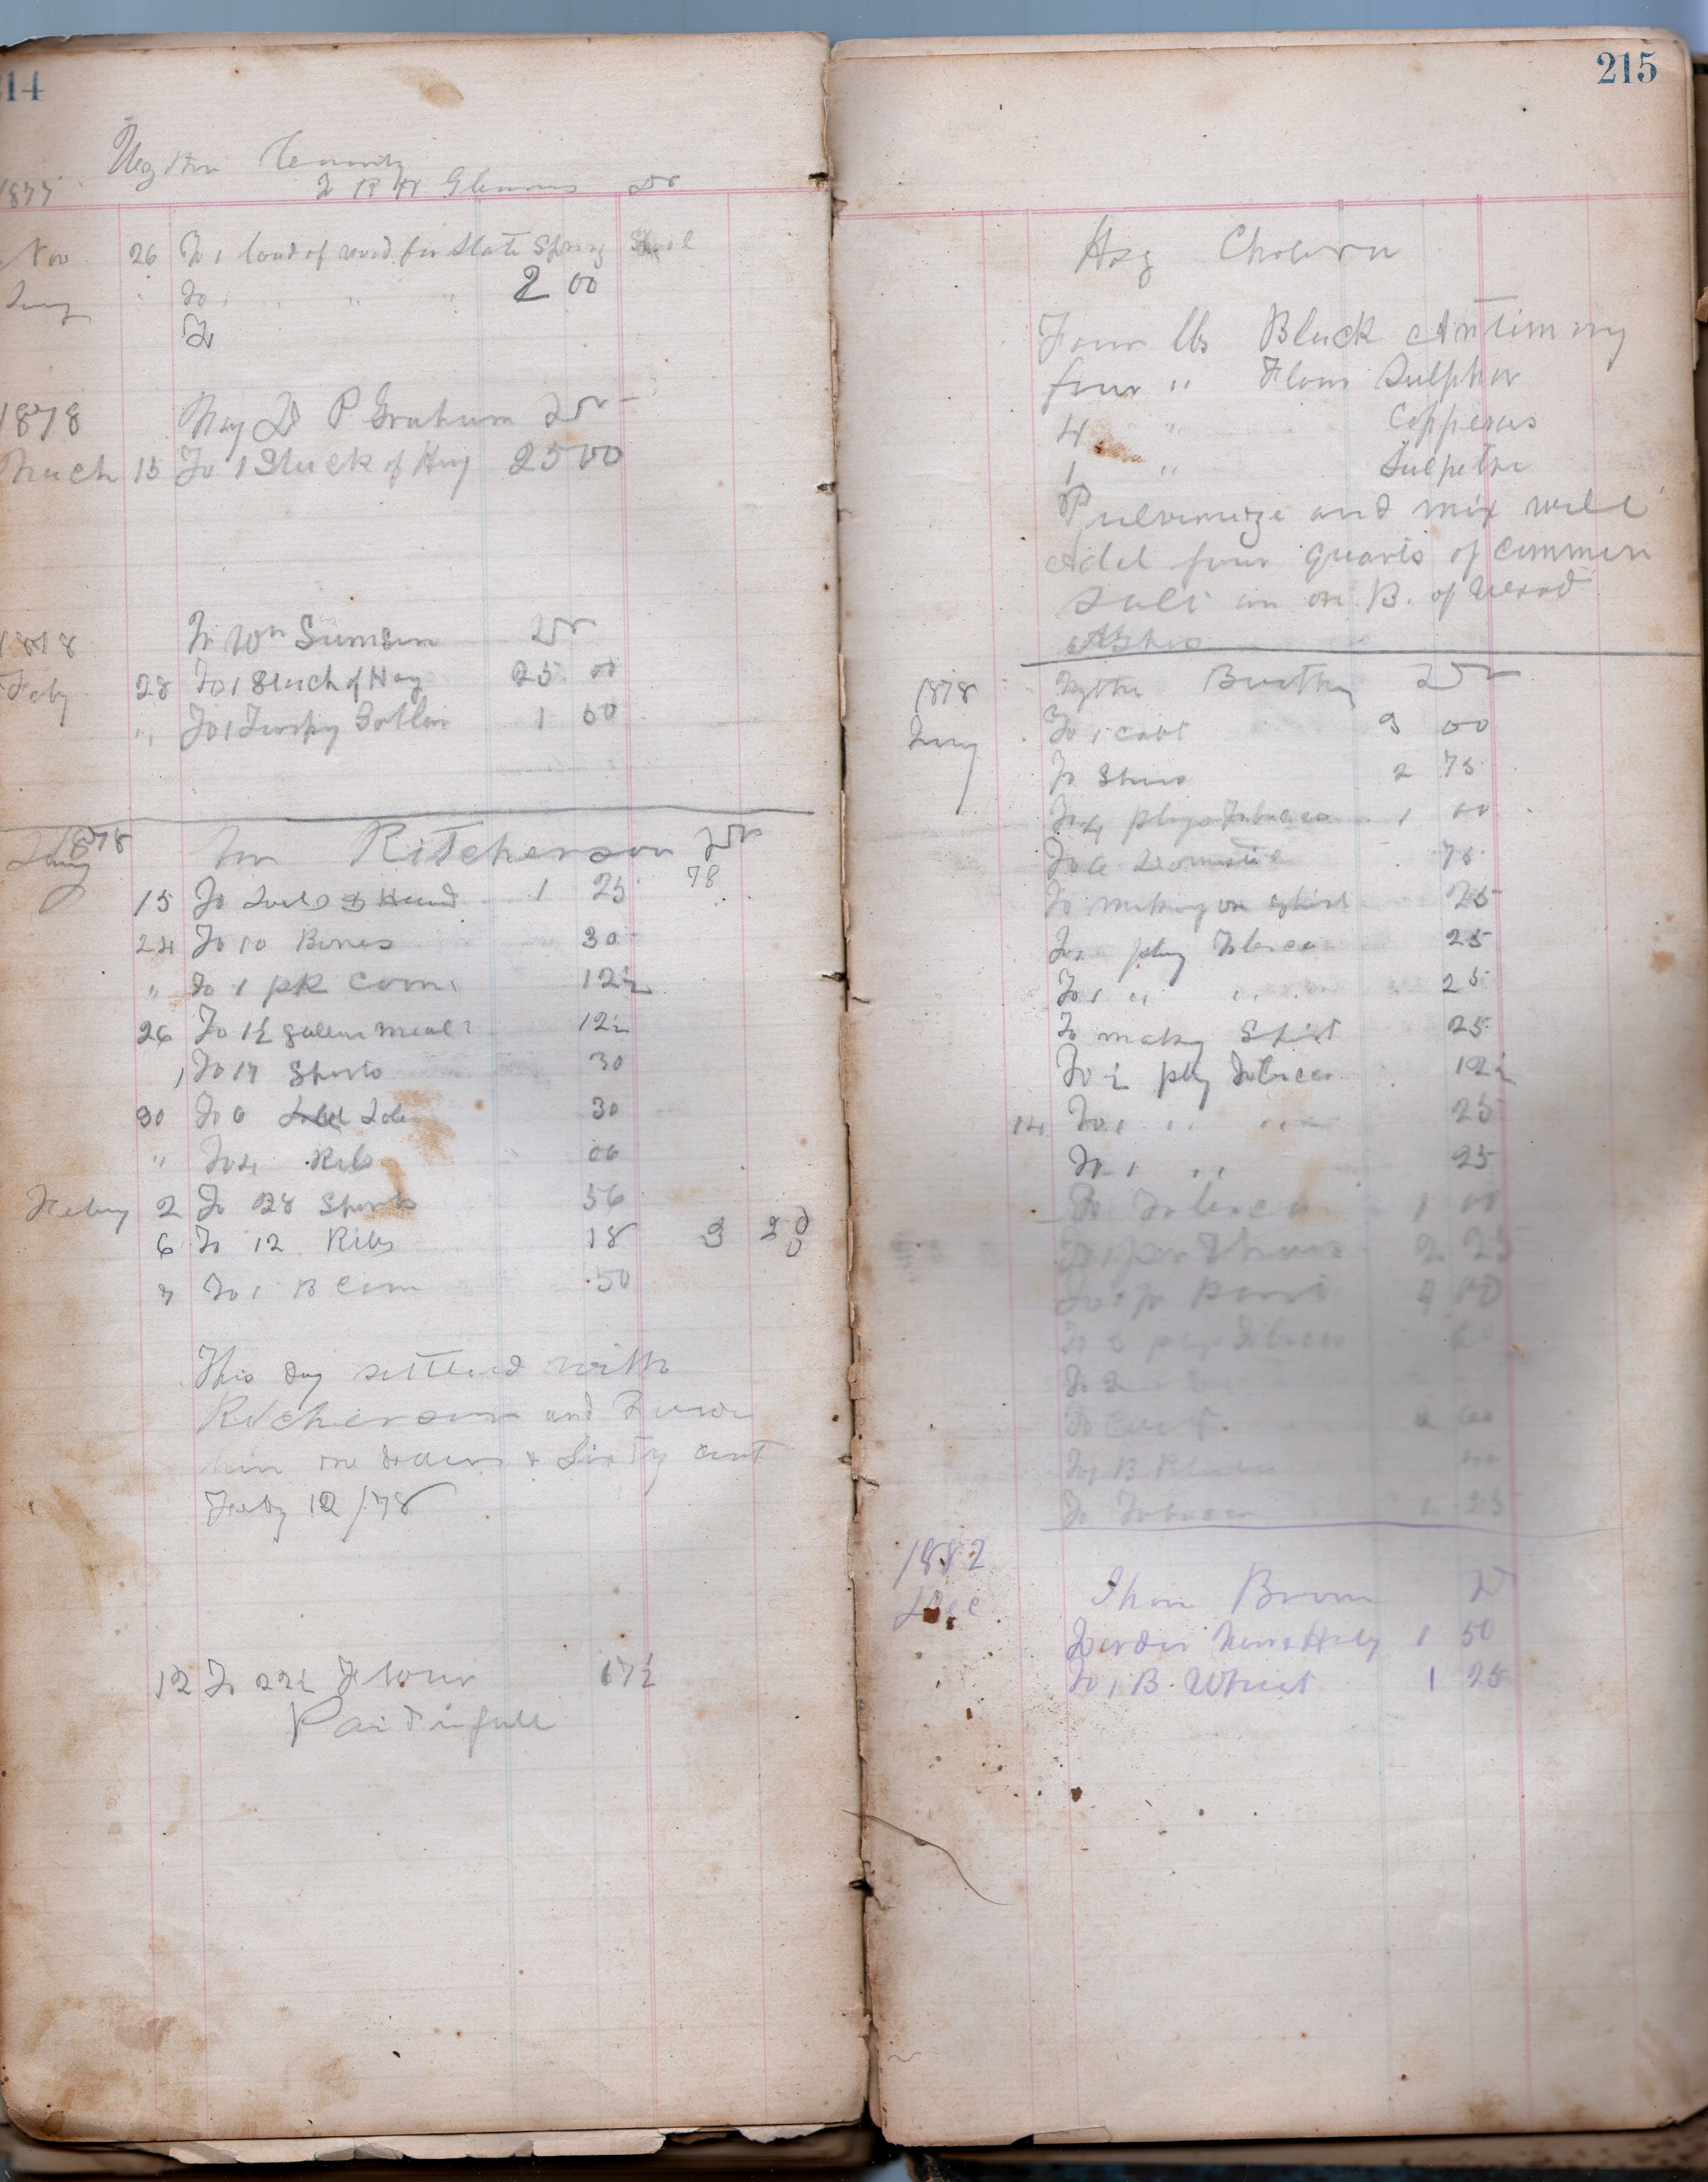 214
County
1877 To R H Glenns Dr
Nov 26 To 1 load of wood for Slate Spring School
Jany " To 1 " " " 2 00
To
1878 May D P Graham Dr
March 15 To 1 Stack of Hay 25 00
1878 Wm Dr
Feby 28 To 1 Stack of Hay 25 00
" To 1 1 50
1878
Jany Mr Ritcherson Dr
15 To & Head 1 25 78
24 To 10 Bones 30
" To 1 pk Corn 12½
26 To 1½ galens meal 12½
" To 17 Shorts 30
30 To 6 30
" To 4 Ribs 06
Febuy 2 To 28 Shorts 56
6 To 12 Ribs 18 3 20
7 To 1 B Corn 50
This day settled with
Ritcherson and I owe
him one dollars & Sixty cent
Feby 12 /78
12 To 22½ Flour 17½
Paid in full
215
Hog Cholera
Four lbs Black Antimony
four " Flour Sulphur
4 " Copperas
1 " Sulpetre
Pulvimerize and mix well
Add four quarts of common
Salt an on B. of Wood
Ashes
1878 Dr
Jany To 1 coat 3 00
To Shoes 2 75
To 4 plugs Tobacco 1 00
To 6 Domestic 75
To making on Shirt 25
To 1 plug Tobacco 25
To 1 " " 25
To making Shirt 25
To ½ plug Tobacco 12½
14 To 1 " " 25
To 1 " 25
To Tobacco 1 00
To 1 par Shoes 2 25
To 1 pr Pants 4 00
To 3 plugs Tobacco
To 2
To
To 1 B
To Tobacco 1 25
1882
Dec Thom Brown Dr
To order 1 50
To 1 B Wheat 1 25